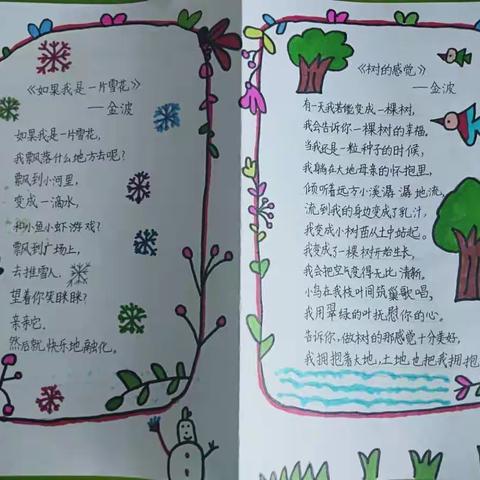 《如果我是一片雪花》
——金波
如果我是一片雪花,
我飘落什么地方去呢?
飘到小河里,
变成一滴水,
和小鱼小虾游戏?
飘到广场上,
去推雪人,
望着你笑眯眯?
亲亲它,
然后就快乐地融化。
《树的感觉》
——金波
有一天我若能变成一棵树,
我会告诉你一棵树的幸福,
当我还是一粒种子的时候,
我躺在大地母亲的怀抱里,
倾听着远方小溪潺潺地流,
流到我的身边变成了乳汁,
我变成小树苗从土中站起。
我变成了一棵树开始生长,
我会把空气变得无比清新。
小鸟在我枝叶间筑巢歌唱,
我用翠绿的叶抚慰你的心。
告诉你,做树的那感觉十分美好,
我拥抱着大地,土地也把我拥抱